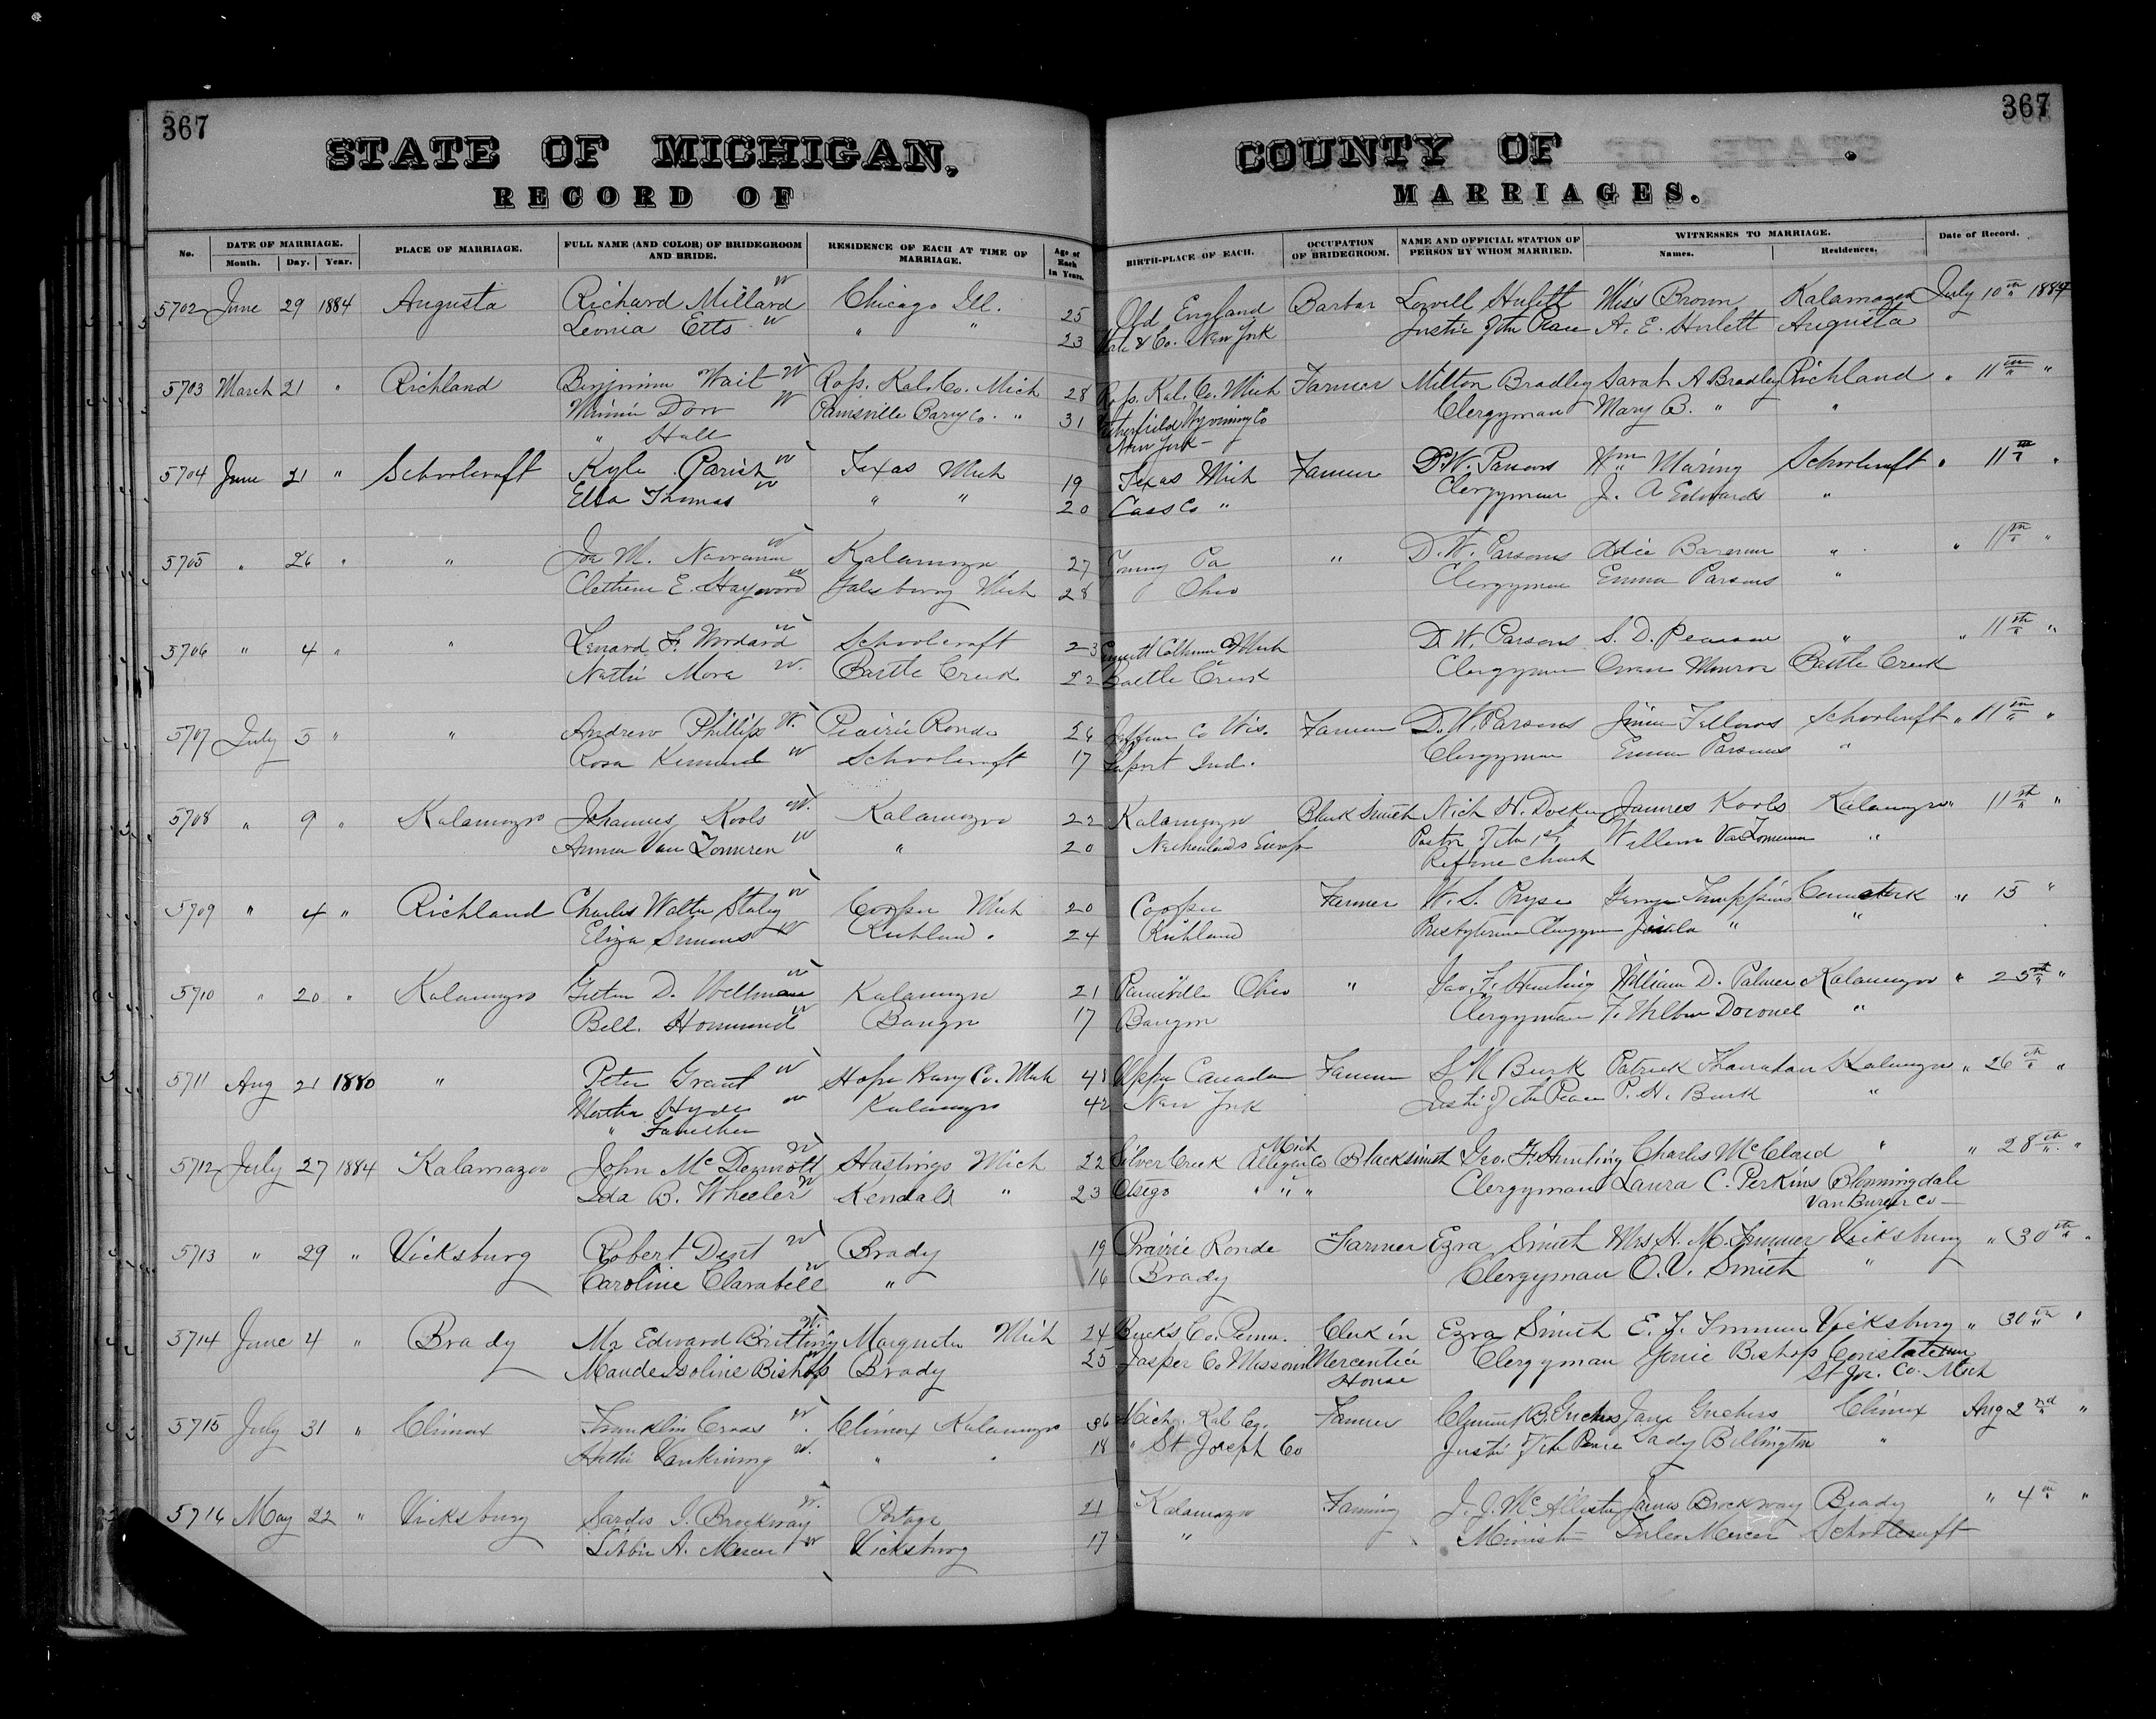 367
367
STATE OF MICHIGAN,
COUNTY OF .
RECORD OF
MARRIAGES.
No. DATE OF MARRIAGE. Month. Day. Year. PLACE OF MARRIAGE. FULL NAME (AND COLOR) OF BRIDEGROOM AND BRIDE. RESIDENCE OF EACH AT TIME OF MARRIAGE. Age of Each in Years. BIRTH-PLACE OF EACH. OCCUPATION OF BRIDEGROOM. NAME AND OFFICIAL STATION OF PERSON BY WHOM MARRIED. WITNESSES TO MARRIAGE. Names. Residences. Date of Record.
5702 June 29 1884 Augusta Richard Millard W Chicago Ill. 25 Old England Barbar Lowell Hulett Miss Brown Kalamazoo July 10th 1884
Leonia Etts W " " 23 & Co. New York Justice of the Peace A. E. Hulett Augusta
5703 March 21 " Richland Benjimin Wait W Ross. Kal. Co. Mich 28 Ross. Kal. Co. Mich Farmer Milton Bradley Sarah A Bradley Richland " 11th "
Minnie Dow W Barry Co. " 31 Wyoming Co Clergyman Mary B. " "
" Hall New York
5704 June 21 " Schoolcraft Kyle Parish W Texas Mich 19 Texas Mich Farmer D.W. Parsons Wm Maring Schoolcraft " 11th "
Ella Thomas W " " 20 Cass Co " Clergyman J. A Edwards "
5705 " 26 " " M. W Kalamazoo 27 Pa " D. W. Parsons " " 11th "
E. Hayword W Galesburg Mich 28 Ohio Clergyman Emma Parsons "
5706 " 4 " " Lenard F. Wordard W Schoolcraft 23 Emmett Calhoun Co Mich D. W. Parsons S. D. " " 11th "
Nettie More W. Battle Creek 22 Battle Creek Clergyman Owen Munroe Battle Creek
5707 July 5 " " Andrew Phillips W. Prairie Ronde 26 Co Wis. Farmer D. W. Parsons Fellows Schoolcraft " 11th "
Rosa W Schoolcraft 17 Laport Ind. Clergyman Emma Parsons "
5708 " 9 " Kalamazoo Johannes Kools W. Kalamazoo 22 Kalamazoo Black Smith Nich H. Dosker Jannes Kools Kalamazoo " 11th "
Anna Van Zomeren W " 20 Netherlands Europe Pastor of the 1st Willem Van Zomeren "
Reforme Church
5709 " 4 " Richland Charles Walter Staley W Cooper Mich 20 Cooper Farmer W. S. Pryse " 15 "
Eliza Simons W Richland. 24 Richland Presbyterian Clergyman " "
5710 " 20 " Kalamazoo D. Wellman W Kalamazoo 21 Painesville Ohio " Geo. F. Hunting William D. Palmer Kalamazoo " 25th "
Bell. Hommund W Bangor 17 Bangor Clergyman F. Wilber "
5711 Aug 21 1880 " Peter Grant W Hope Barry Co. Mich 48 Upper Canada Farmer Burk Patrick Kalamazoo " 26th "
Martha Hyde W Kalamazoo 42 New York Justice of the Peace P. H. Burk "
"
5712 July 27 1884 Kalamazoo John McDermott W Hastings Mich 22 Silver Creek Allegan Co Mich Blacksmith Geo. F. Hunting Charles McCloud " " 28th "
Ida B. Wheeler W Kendals " 23 Otsego " " " Clergyman Laura C. Perkins Bloomingdale
Van Buren Co
5713 " 29 " Vicksburg Robert Dent W Brady 19 Prairie Ronde Farmer Ezra Smith Mrs H. M. Vicksburg " 30th "
Caroline Clarabell W " 16 Brady Clergyman O. V. Smith "
5714 June 4 " Brady Mr Edward Britting W. Marquette Mich 24 Bucks Co. Penn. Clerk in Ezra Smith E. J. Vicksburg " 30th "
Maude Isoline Bishop W Brady 25 Jasper Co Missouri Mercentile Clergyman Bishop Constatine
House St Jo. Co. Mich
5715 July 31 " Climax Franklin Cross W. Climax Kalamazoo 36 Mich. Kal Co. Farmer B. Jane Climax Aug 2nd "
Hattie W. " " 18 " St Joseph Co Justice of the Peace Lady Billington "
5716 May 22 " Vicksburg Sardis J. Brockway W. Portage 21 Kalamazoo Farming J. J. McAllister James Brockway Brady " 4th "
Libbie A. Mercer W Vicksburg 17 " Minister Mercer Schoolcraft